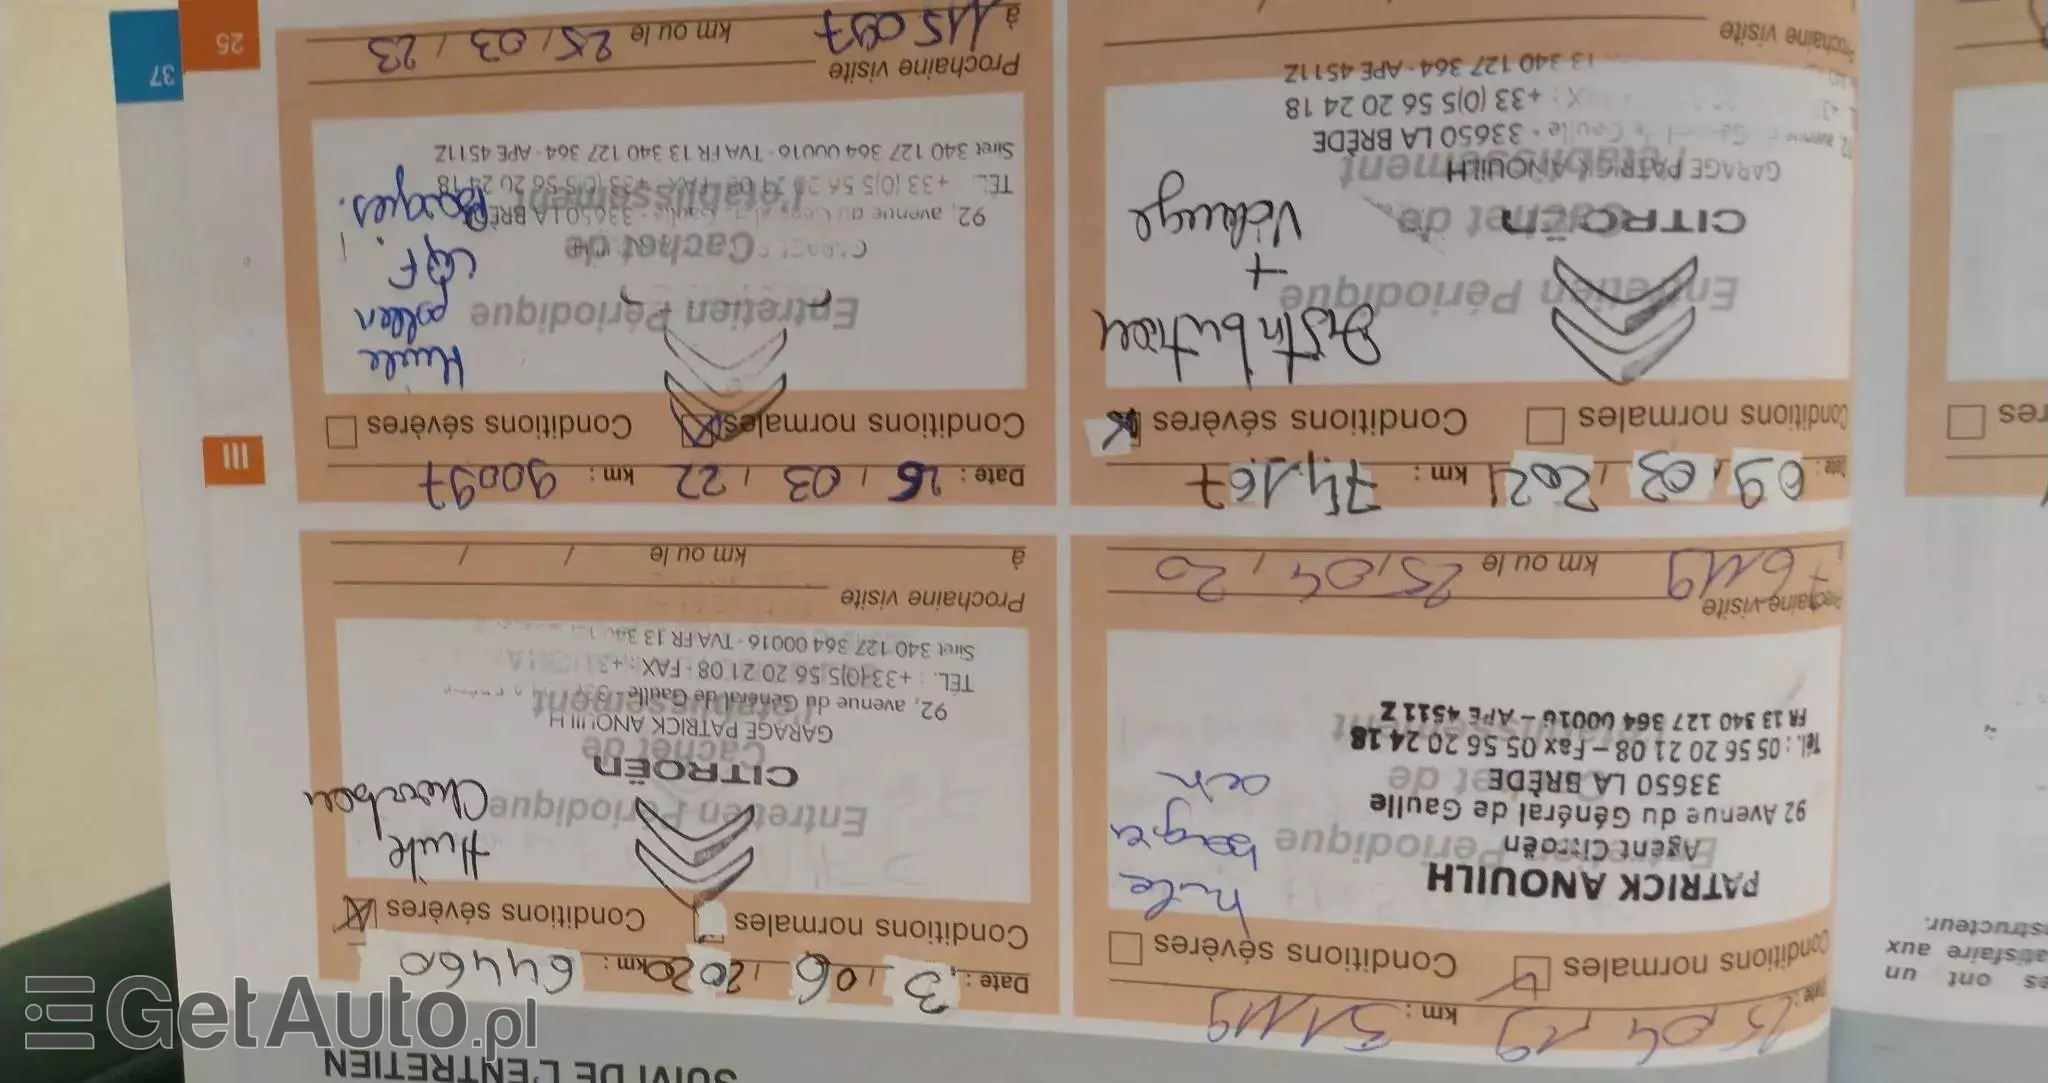 SUIVI DE L'ENTRETIEN
Date : 25, 04, 19 km : 51119
Conditions normales Conditions sévères
Entretien Périodique
PATRICK ANOUILH
Agent Citroën
92 Avenue du Général de Gaulle
33650 LA BRÈDE
Tél. : 05 56 20 21 08 – Fax 05 56 20 24 18
FR 13 340 127 364 00016 – APE 4511 Z
Prochaine visite
76119 km ou le 25, 04, 20
Date : 3, 06, 2020 km : 64460
Conditions normales Conditions sévères
Huile
Entretien Périodique
CITROËN
Cachet de
GARAGE PATRICK ANOUILH
92, avenue du Général de Gaulle
l'établissement
TÉL. : +33 (0)5 56 20 21 08 - FAX : +3
Siret 340 127 364 00016 - TVA FR 13 34
Prochaine visite
à km ou le / /
Date : 09, 03, 2021 km : 74,167
Conditions normales Conditions sévères
Distribution
+
Vidange
Entretien Périodique
CITROËN
Cachet de
GARAGE PATRICK ANOUILH
l'établissement
33650 LA BRÈDE
+33 (0)5 56 20 24 18
13 340 127 364 - APE 4511Z
Prochaine visite
Date : 25, 03, 22 km : 90097
Conditions normales Conditions sévères
Huile
pollen
Entretien Périodique
Cachet de
92, avenue du
33650 LA BRÈDE
l'établissement
TÉL. +33 (0)5 56 20 21 08 - FAX : +33 (0)5 56 20 24 18
Siret 340 127 364 00016 - TVA FR 13 340 127 364 - APE 4511Z
Prochaine visite
à 115097 km ou le 25, 03, 23
III
25
37
es ont un
satisfaire aux
structeur.
GetAuto.pl